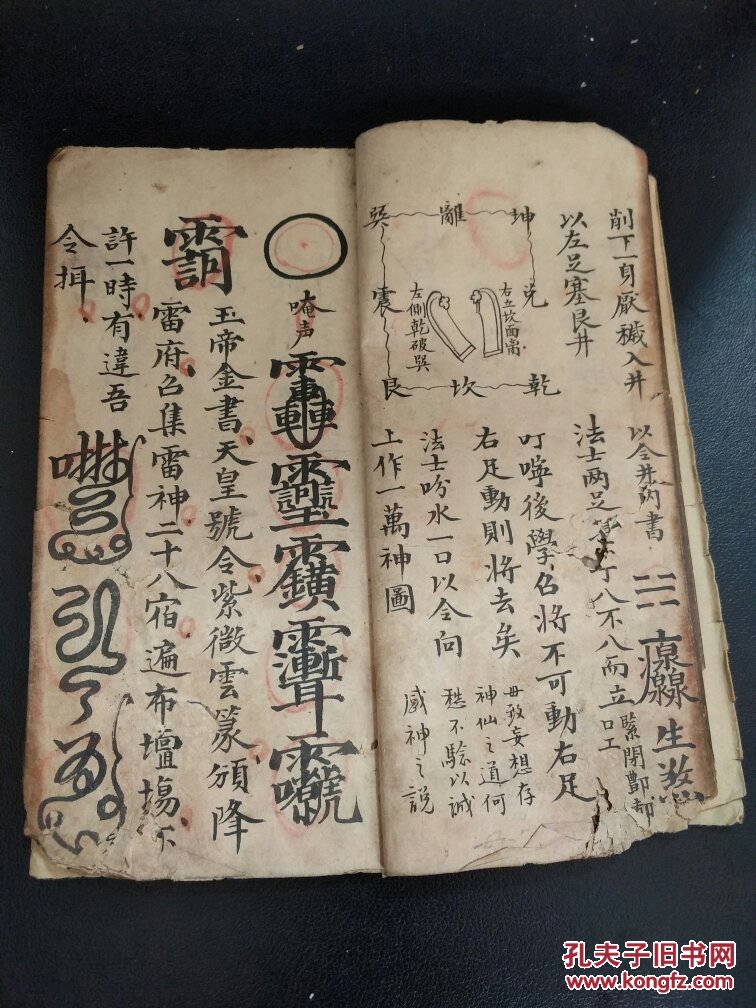 削下一身厭穢入井
以左足塞艮井
巽 離 坤
震 兌
艮 坎 乾
右立坎面离
左側乾破巽
以令井內書
生炁
法士两足
丁八不八而立
緊閉酆都
口工
叮嚀後學召將不可動右足
右足動則将去矣
法士吩水一口以令向
上作一萬神圖
毋致妄想存
神仙之道何
愁不驗以誠
感神之說
唵声
玉帝金書天皇號令紫微雲篆頒降
雷府召集雷神二十八宿遍布壇塲不
許一時有違吾
令挕
孔夫子旧书网
www.kongfz.com